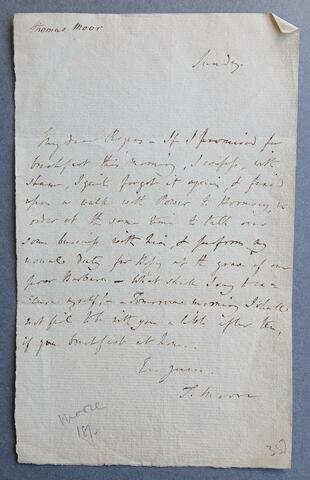 Thomas Moor
Sunday.
My dear Rogers – If I promised for
breakfast this morning, I confess, with
shame, I quite forgot it again, & fixed
upon a walk with Power to Hornsey, in
order at the same time to talk over
some business with him, & perform my
usual duty for Bessy at the grave of our
poor Barbara – What shall I say to
myself? – Tomorrow morning I shall
not fail to be with you a little after ten,
if you breakfast at home.
Ever yours
T. Moore
Moore
18/-
35/